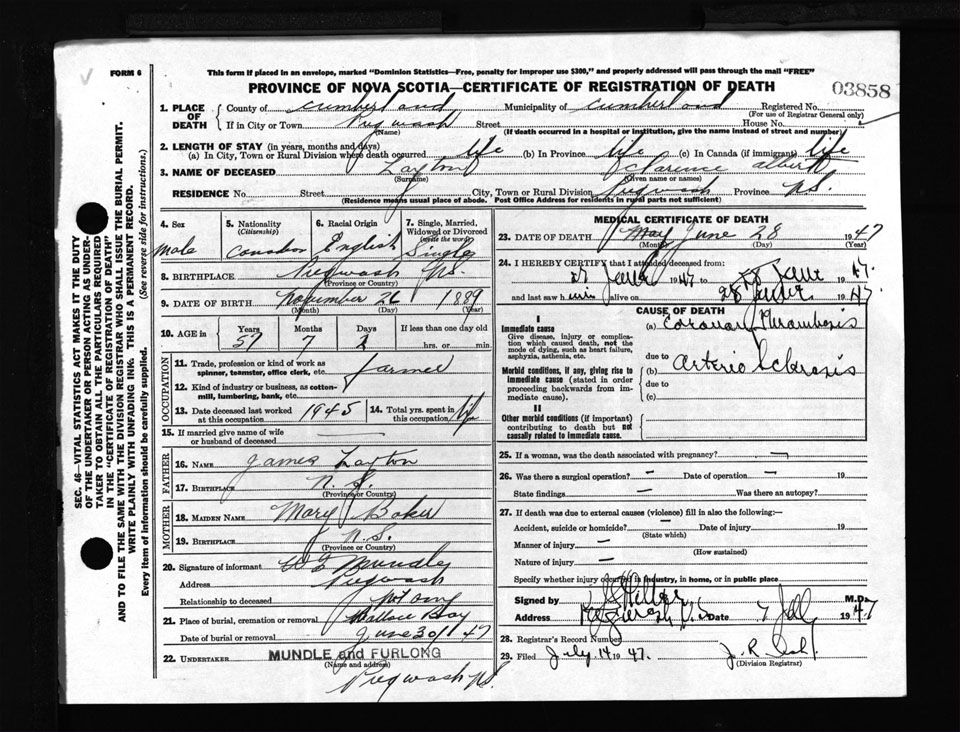 FORM 6
This form if placed in an envelope, marked "Dominion Statistics—Free, penalty for improper use $300," and properly addressed will pass through the mail "FREE"
PROVINCE OF NOVA SCOTIA—CERTIFICATE OF REGISTRATION OF DEATH
03858
SEC. 46—VITAL STATISTICS ACT MAKES IT THE DUTY
OF THE UNDERTAKER OR PERSON ACTING AS UNDER-
TAKER TO OBTAIN ALL THE PARTICULARS REQUIRED
IN THE "CERTIFICATE OF REGISTRATION OF DEATH"
AND TO FILE THE SAME WITH THE DIVISION REGISTRAR WHO SHALL ISSUE THE BURIAL PERMIT.
WRITE PLAINLY WITH UNFADING INK. THIS IS A PERMANENT RECORD.
Every item of information should be carefully supplied. (See reverse side for instructions.)
1. PLACE OF DEATH
County of Cumberland Municipality of Cumberland Registered No.
(For use of Registrar General only)
If in City or Town Pugwash Street House No.
(Name) (If death occurred in a hospital or institution, give the name instead of street and number)
2. LENGTH OF STAY (in years, months and days)
(a) In City, Town or Rural Division where death occurred life (b) In Province life (c) In Canada (if immigrant) life
3. NAME OF DECEASED Layton Clarence Albert
(Surname) (Given name or names)
RESIDENCE No. Street City, Town or Rural Division Pugwash Province N.S.
(Residence means usual place of abode. Post Office Address for residents in rural parts not sufficient)
4. Sex Male
5. Nationality (Citizenship) Canadian
6. Racial Origin English
7. Single, Married, Widowed or Divorced (write the word) Single
8. BIRTHPLACE Pugwash N.S.
(Province or Country)
9. DATE OF BIRTH November 26 1889
(Month) (Day) (Year)
10. AGE in Years 57 Months 7 Days 2 If less than one day old hrs. or min.
OCCUPATION
11. Trade, profession or kind of work as spinner, teamster, office clerk, etc. farmer
12. Kind of industry or business, as cotton-mill, lumbering, bank, etc.
13. Date deceased last worked at this occupation 1945
14. Total yrs. spent in this occupation life
15. If married give name of wife or husband of deceased —
FATHER
16. NAME James Layton
17. BIRTHPLACE N.S.
(Province or Country)
MOTHER
18. MAIDEN NAME Mary Baker
19. BIRTHPLACE N.S.
(Province or Country)
20. Signature of informant Mundle
Address Pugwash
Relationship to deceased not any
21. Place of burial, cremation or removal Wallace Bay
Date of burial or removal June 30/47
22. UNDERTAKER MUNDLE and FURLONG
(Name and address)
Pugwash N.S.
MEDICAL CERTIFICATE OF DEATH
23. DATE OF DEATH May June 28 1947
(Month) (Day) (Year)
24. I HEREBY CERTIFY that I attended deceased from:
27 June 1947 to 28 June 1947.
and last saw him alive on 28 June 1947
CAUSE OF DEATH
I
Immediate cause
Give disease, injury or complication which caused death, not the mode of dying, such as heart failure, asphyxia, asthenia, etc.
(a) Coronary Thrombosis
due to
Morbid conditions, if any, giving rise to immediate cause (stated in order proceeding backwards from immediate cause).
(b) Arterio Sclerosis
due to
(c)
II
Other morbid conditions (if important) contributing to death but not causally related to immediate cause.
25. If a woman, was the death associated with pregnancy? —
26. Was there a surgical operation? — Date of operation — 19
State findings — Was there an autopsy?
27. If death was due to external causes (violence) fill in also the following:—
Accident, suicide or homicide? — Date of injury 19
(State which)
Manner of injury —
(How sustained)
Nature of injury —
Specify whether injury occurred in industry, in home, or in public place
Signed by M.D.
Address N.S. Date 7 July 1947
28. Registrar's Record Number
29. Filed July 14 1947. J. R.
(Division Registrar)